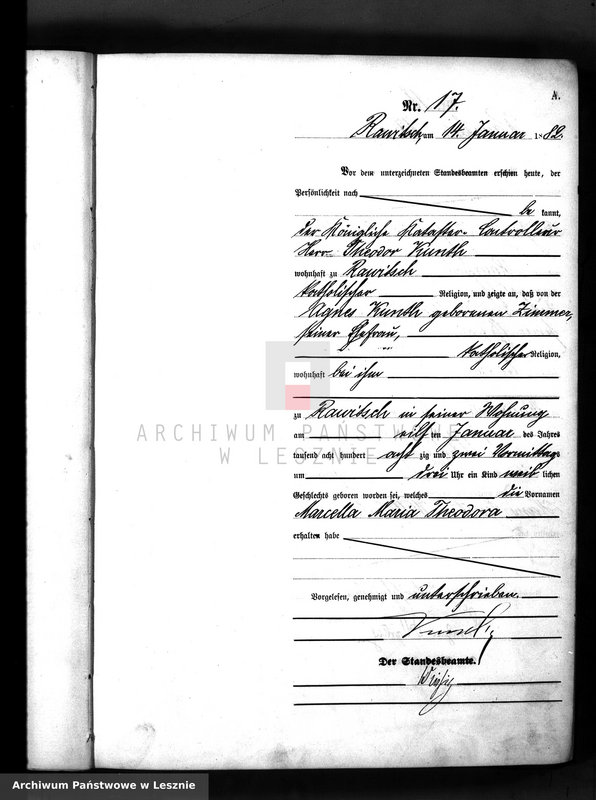 A.
Nr. 17.
Rawitsch, am 14. Januar 1882.
Vor dem unterzeichneten Standesbeamten erschien heute, der
Persönlichkeit nach
be kannt,
der Königliche Kataster-Controlleur
Herr Theodor Kunth
wohnhaft zu Rawitsch
katholischer Religion, und zeigte an, daß von der
Agnes Kunth geborenen Zimmer,
seiner Ehefrau,
katholischer Religion,
wohnhaft bei ihm
zu Rawitsch in seiner Wohnung
am eilf ten Januar des Jahres
tausend acht hundert acht zig und zwei Vormittags
um drei Uhr ein Kind weib lichen
Geschlechts geboren worden sei, welches die Vornamen
Marcella Maria Theodora
erhalten habe
Vorgelesen, genehmigt und unterschrieben.
Kunth
Der Standesbeamte.
ARCHIWUM PAŃSTWOWE
W LESZNIE
Archiwum Państwowe w Lesznie